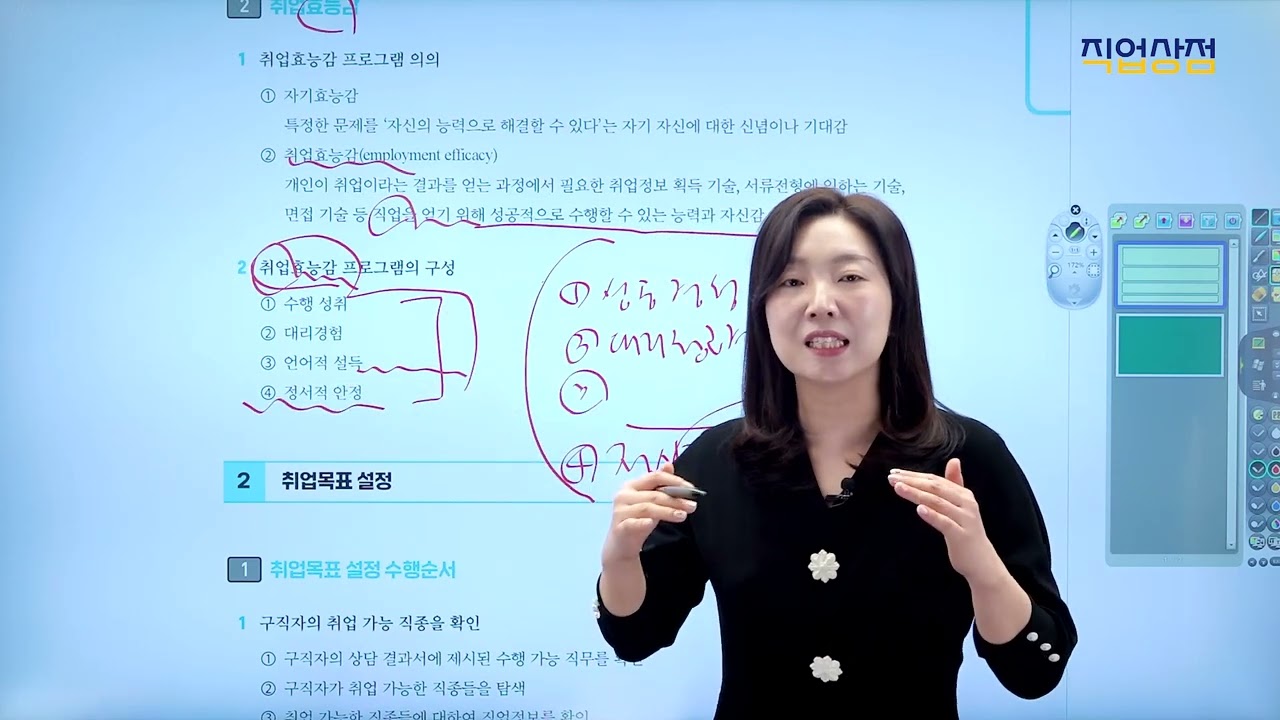 직업상점
2 취업효능감
1 취업효능감 프로그램 의의
① 자기효능감
특정한 문제를 '자신의 능력으로 해결할 수 있다'는 자기 자신에 대한 신념이나 기대감
② 취업효능감(employment efficacy)
개인이 취업이라는 결과를 얻는 과정에서 필요한 취업정보 획득 기술, 서류전형에 임하는 기술,
면접 기술 등 직업을 얻기 위해 성공적으로 수행할 수 있는 능력과 자신감
2 취업효능감 프로그램의 구성
① 수행 성취
② 대리경험
③ 언어적 설득
④ 정서적 안정
①
② 대리경험
④
2 취업목표 설정
1 취업목표 설정 수행순서
1 구직자의 취업 가능 직종을 확인
① 구직자의 상담 결과서에 제시된 수행 가능 직무를 확인
② 구직자가 취업 가능한 직종들을 탐색
③ 취업 가능한 직종들에 대하여 직업정보를 확인
172%